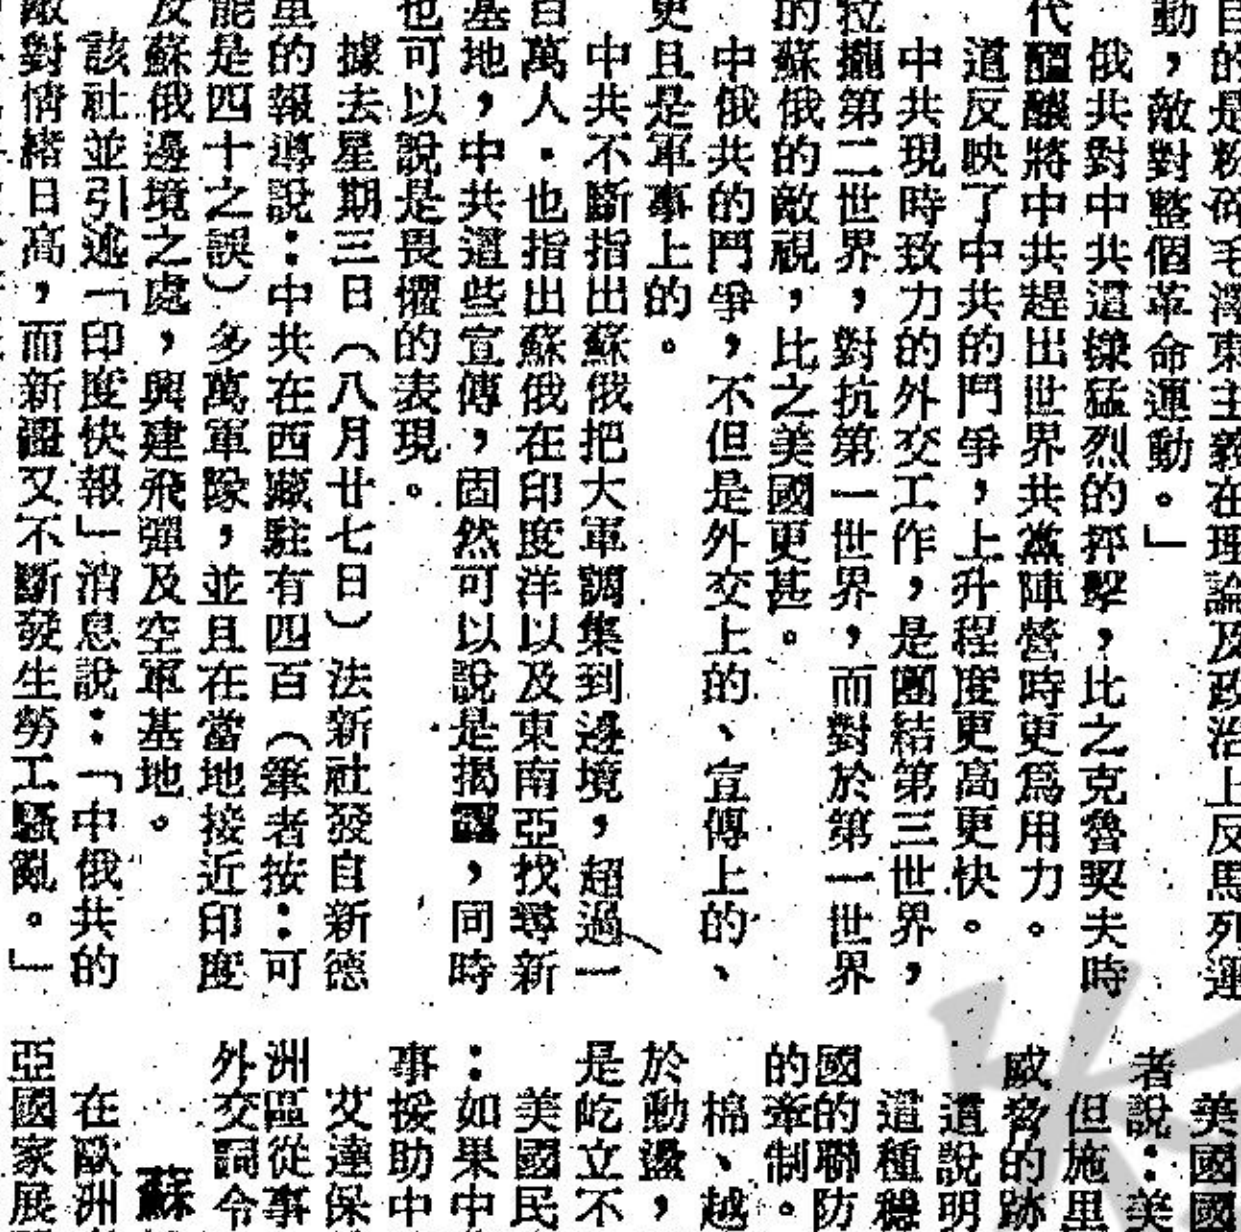 目的是粉碎毛澤東主義在理論及政治上反馬列運
動，敵對整個革命運動。」
俄共對中共這樣猛烈的抨擊，比之克魯契夫時
代醞釀將中共趕出世界共黨陣營時更爲用力。
這反映了中共的鬥爭，上升程度更高更快。
中共現時致力的外交工作，是團結第三世界，
拉攏第二世界，對抗第一世界，而對於第一世界
的蘇俄的敵視，比之美國更甚。
中俄共的鬥爭，不但是外交上的、宣傳上的、
更且是軍事上的。
中共不斷指出蘇俄把大軍調集到邊境，超過一
百萬人．也指出蘇俄在印度洋以及東南亞找尋新
基地，中共這些宣傳，固然可以說是揭露，同時
也可以說是畏懼的表現。
據去星期三日（八月廿七日）法新社發自新德
里的報導說：中共在西藏駐有四百（筆者按：可
能是四十之誤）多萬軍隊，並且在當地接近印度
及蘇俄邊境之處，興建飛彈及空軍基地。
該社並引述「印度快報」消息說：「中俄共的
敵對情緒日高，而新疆又不斷發生勞工騷亂。」
美國國
者說：美
但施里
威脅的跡
這說明
這種穩
國的聯防
的牽制。
棉、越
於動盪，
是屹立不
美國民
：如果中
事援助中
艾達保
洲區從事
外交詞令
蘇
在歐洲
亞國家展